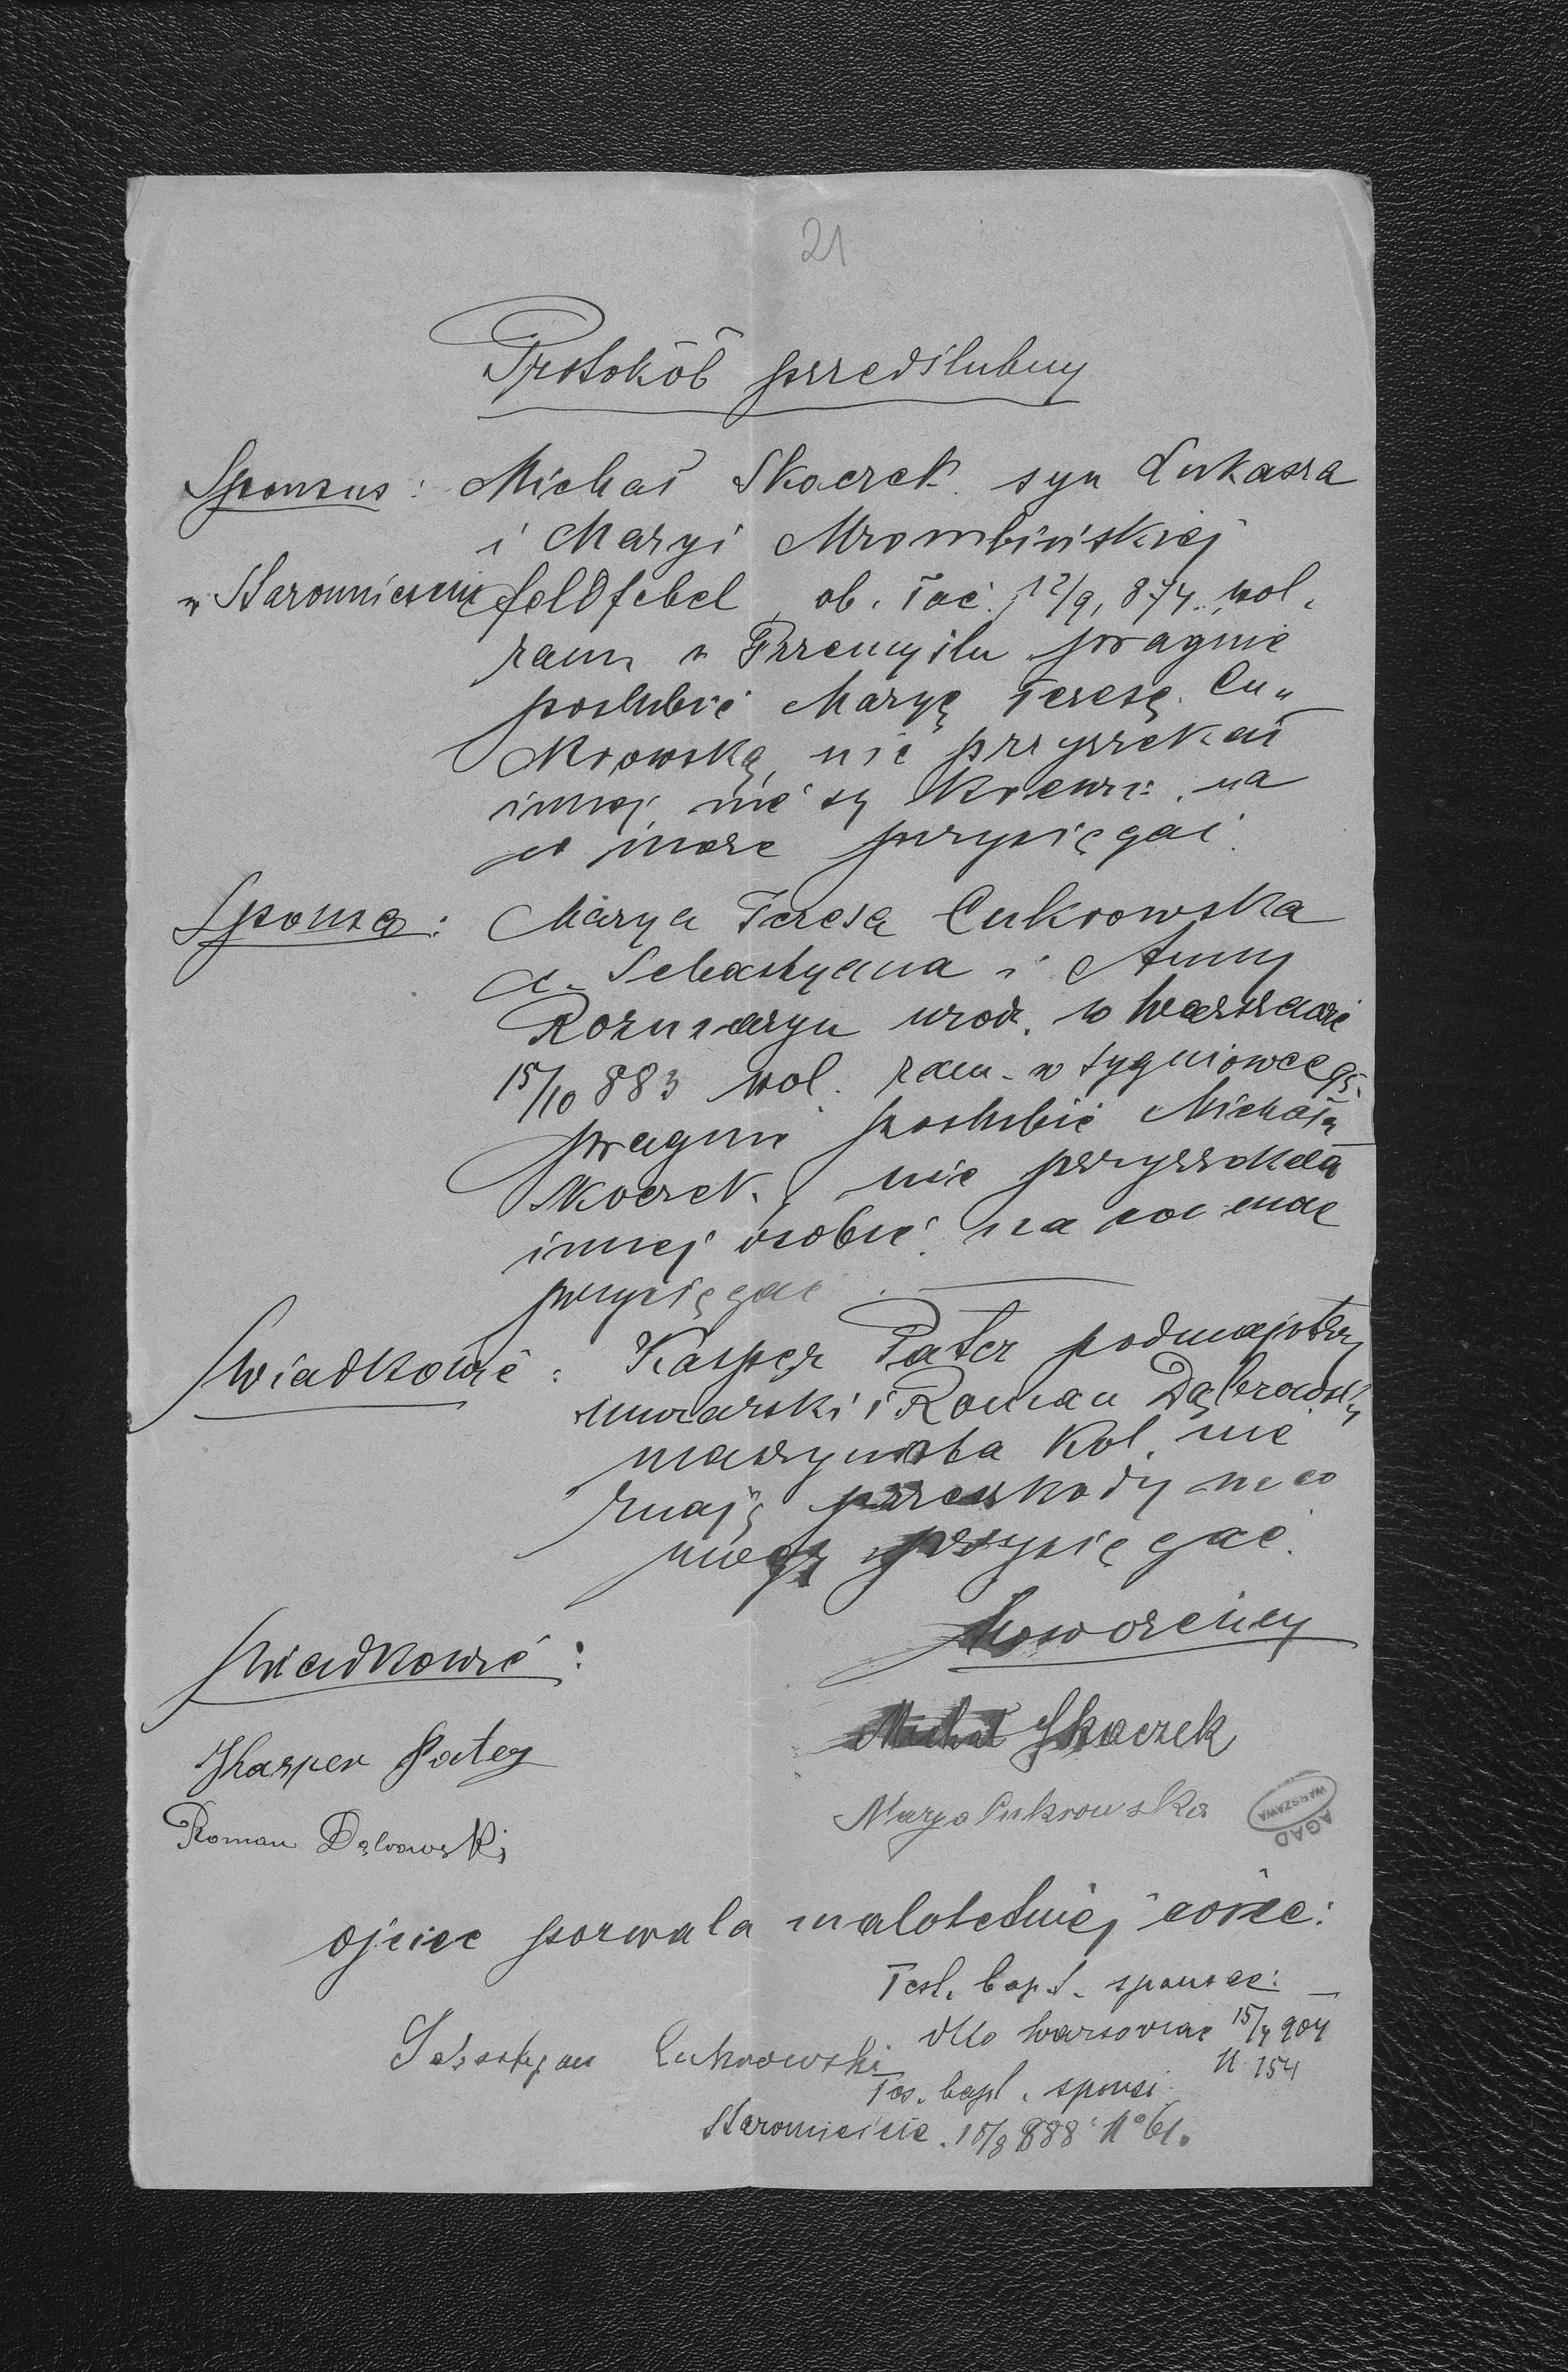 21
Protokół przedślubny
Sponsus: Michał Skoczek syn Łukasza
i Maryi Mrombińskiej
w Staromieściu feldfebel, ob. łać. 12/9, 874. wol.
zam. w Przemyślu pragnie
poślubić Maryę Teresę Cu„
krowską, nie przyrzekał
innej, nie są krewni, na
co może przysięgać.
Sponsa: Marya Teresa Cukrowska
c. Sebastyana i Anny
Rozmaryn urod. w Warszawie
15/10 883 wol. zam. w
pragnie poślubić Michała
Skoczek, nie przyrzekała
innej osobie na co może
przysięgać.
Świadkowie: Kasper Pater podmajstrzy
murarski i Roman Dąbrowski
maszynista kol. nie
znają przeszkody na co
mogą przysięgać.
Świadkowie:
Michał Skoczek
Kasper Pater
Marya Cukrowska
AGAD
WARSZAWA
Roman Dąbrowski
ojciec pozwala małoletniej córce:
Test. bapt. sponsae:
dto Warsoviae 15/4 904
N 154
Sebastyan Cukrowski
Tes. bapt. sponsi
Staromieście. 18/8 888 No 61.